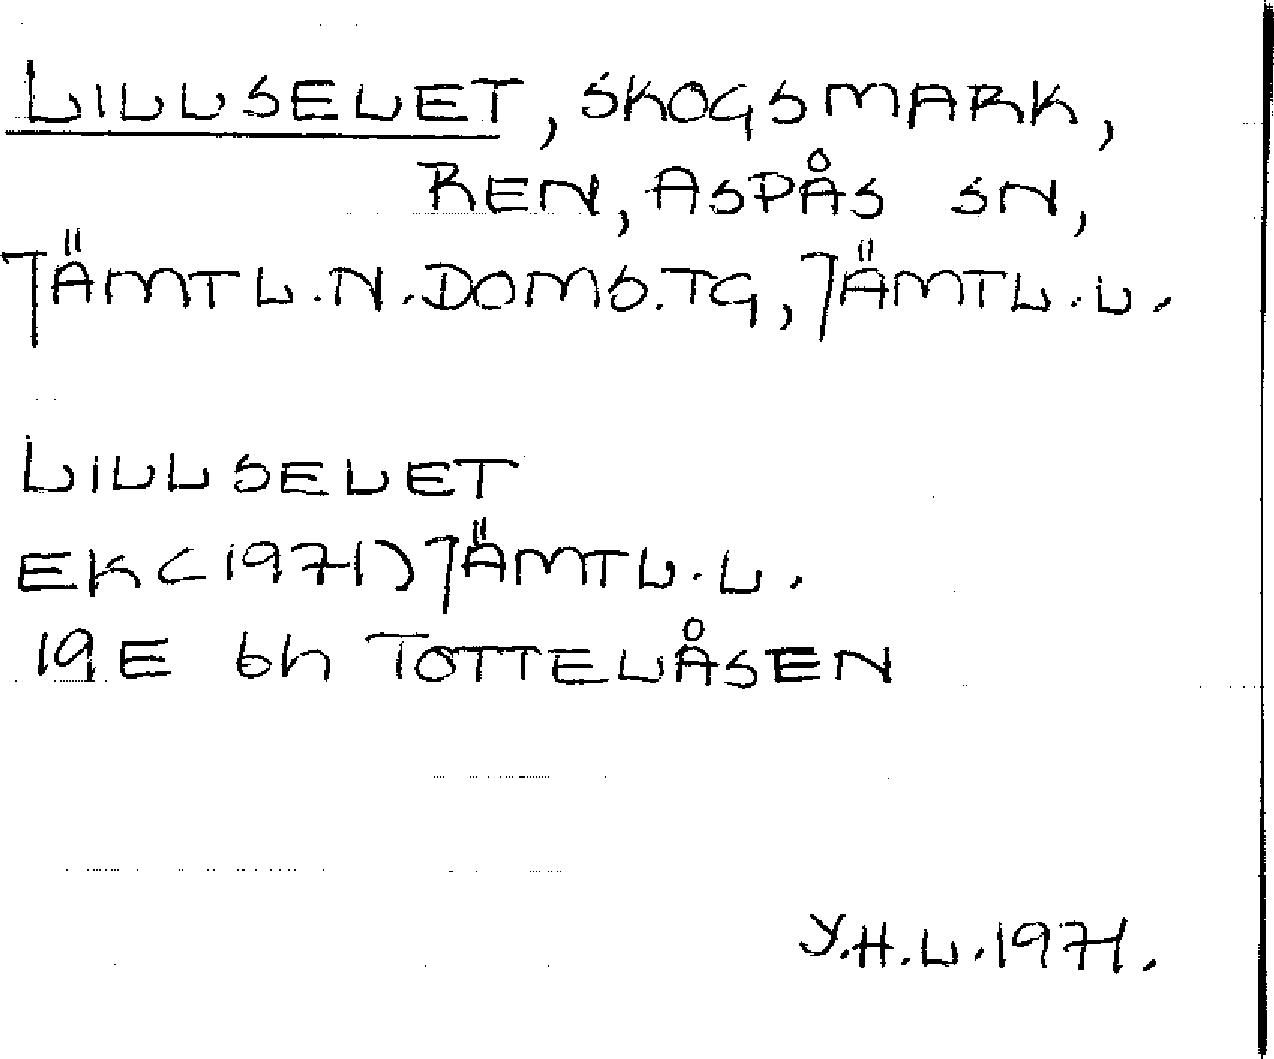 LILLSELET, SKOGSMARK,
REN, ASPÅS SN,
JÄMTL.N.DOMS.TG, JÄMTL.L.
LILLSELET
EK(1971) JÄMTL.L.
19E 6h TOTTELÅSEN
Y.H.L.1971.